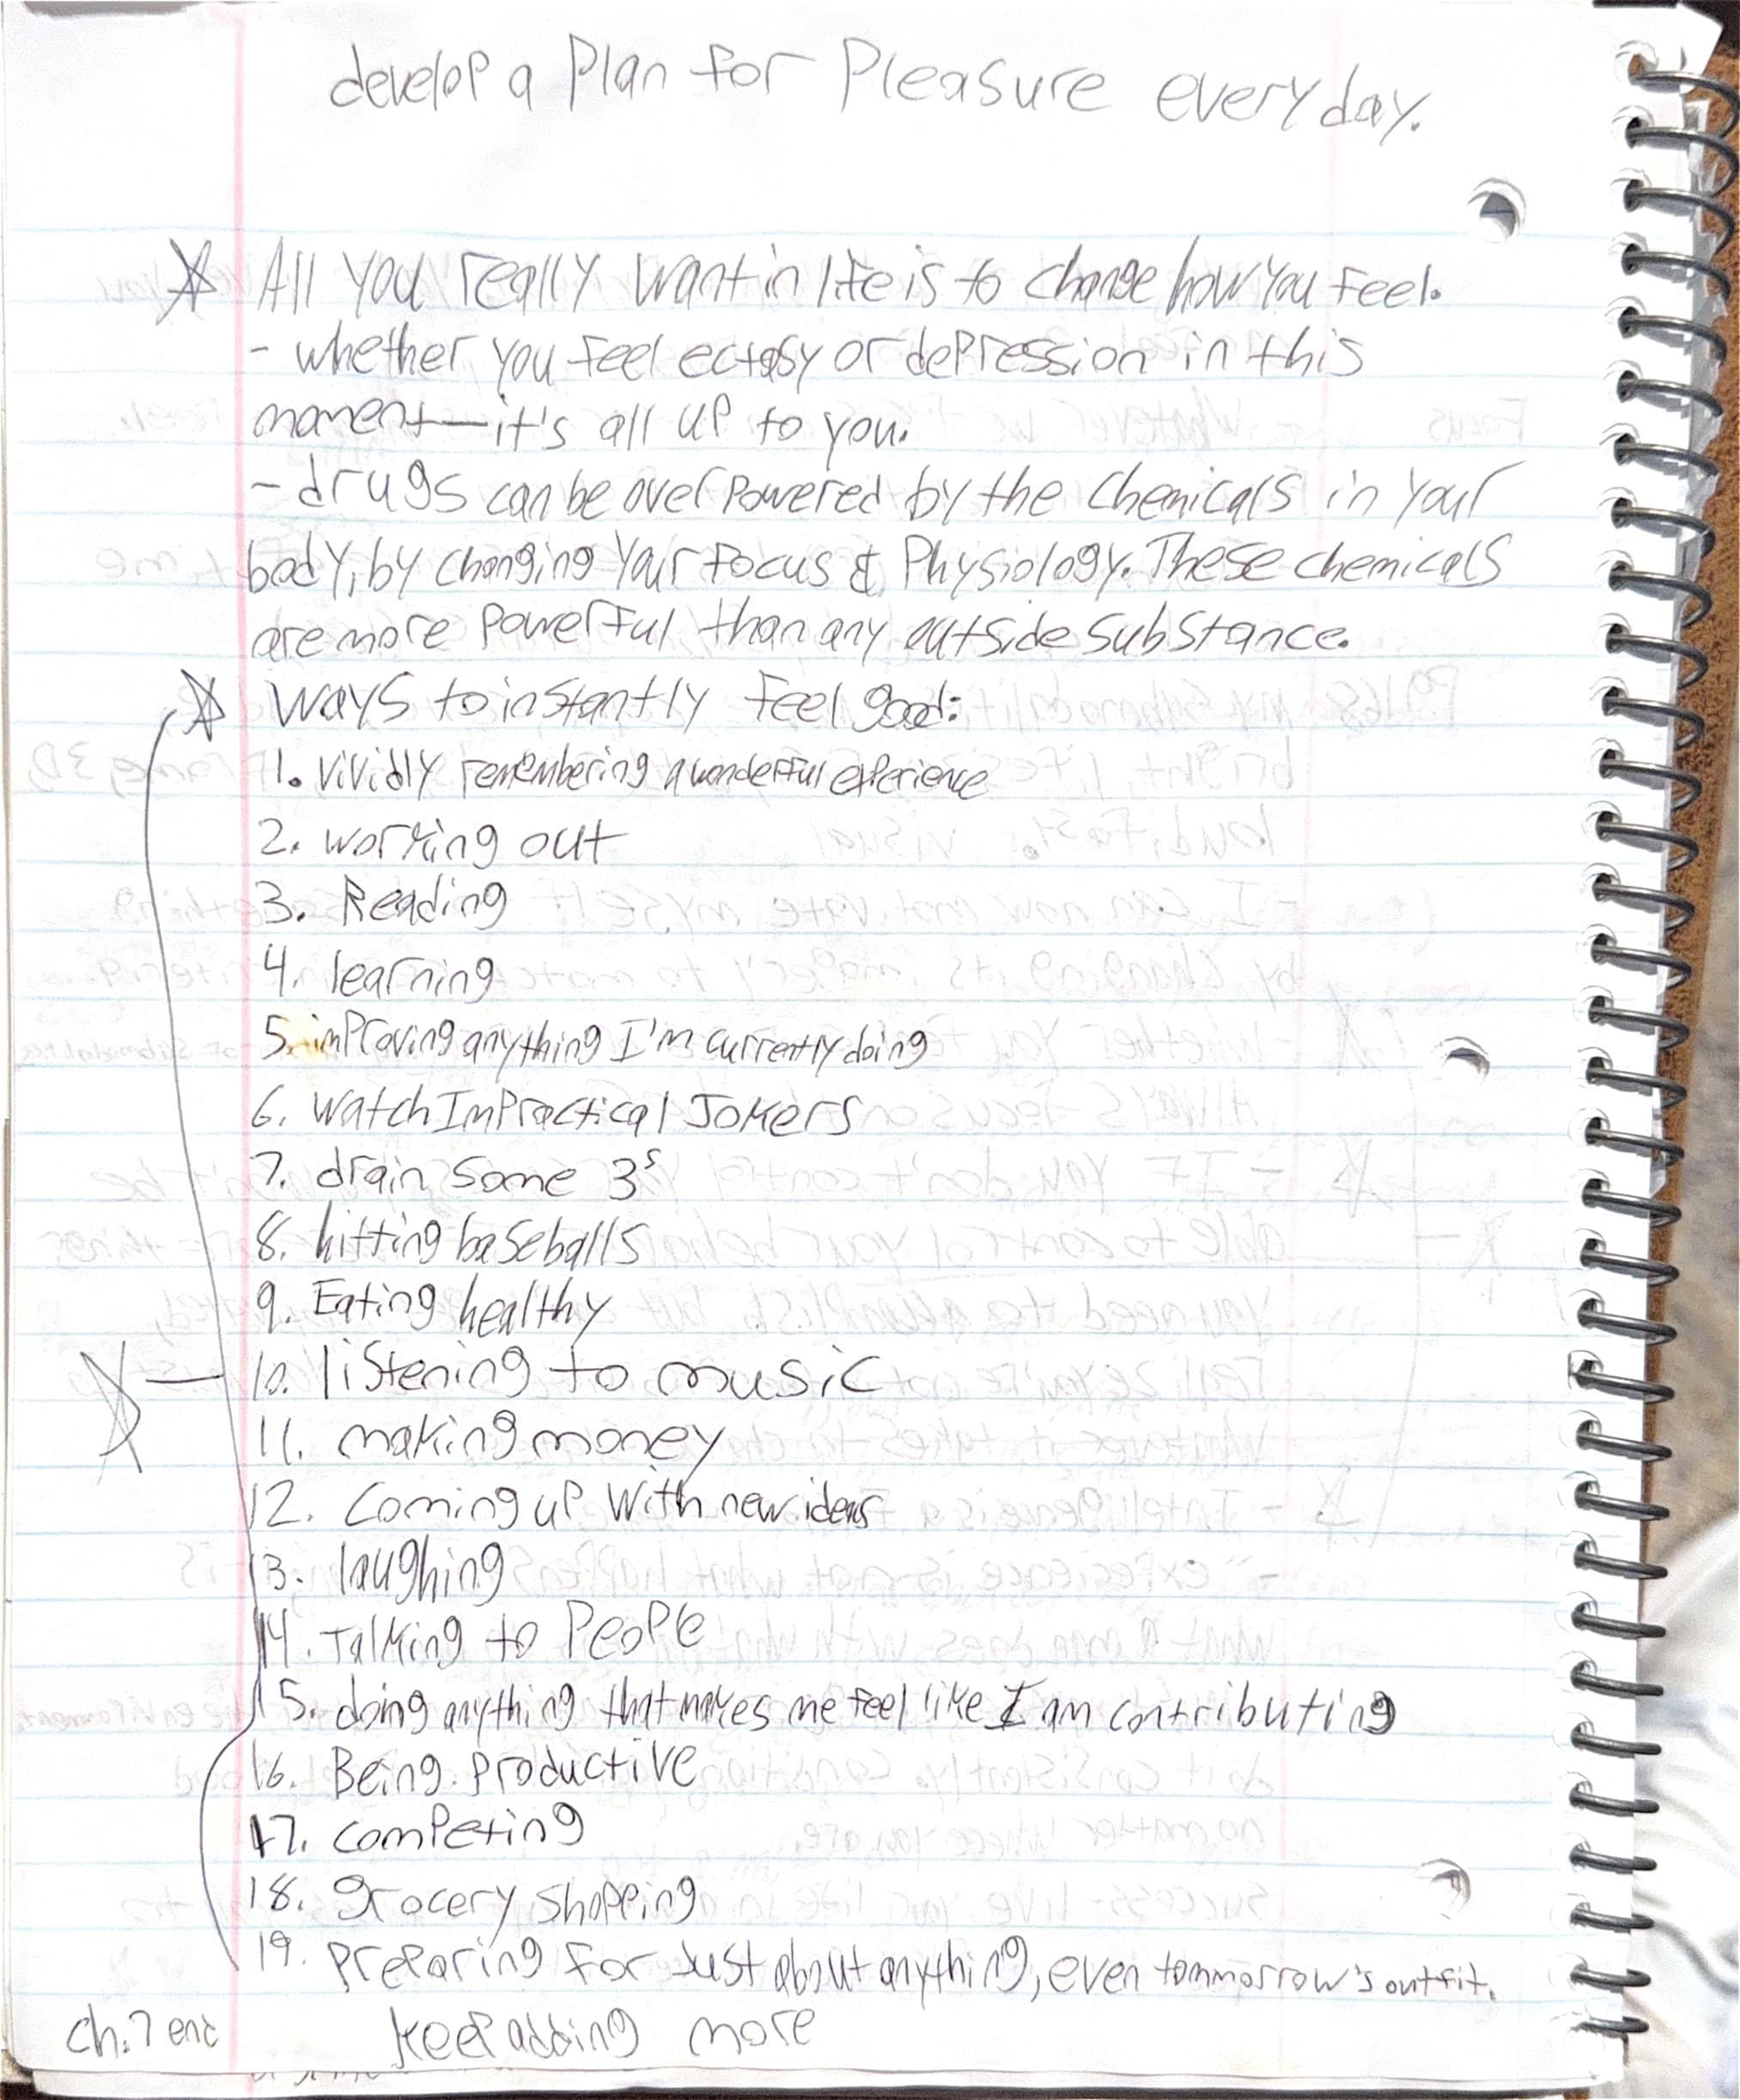 develop a Plan for Pleasure everyday.
All you really want in life is to change how you feel.
- whether you feel ectasy or depression in this
moment—it's all up to you.
- drugs can be overpowered by the chemicals in your
body, by changing your focus & Physiology. These chemicals
are more powerful than any outside substance.
ways to instantly feel good:
1. vividly remembering a wonderful experience
2. working out
3. Reading
4. learning
5. improving anything I'm currently doing
6. watch Impractical Jokers
7. drain some 3s
8. hitting baseballs
9. Eating healthy
10. listening to music
11. making money
12. Coming up with new ideas
13. laughing
14. Talking to People
15. doing anything that makes me feel like I am contributing
16. Being productive
17. competing
18. grocery shopping
19. preparing for just about anything, even tommorrow's outfit.
ch. 7 end keep adding more